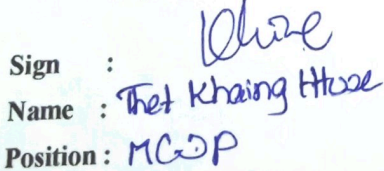 Sign :
Name : Thet Khaing Htwe
Position : MGDP